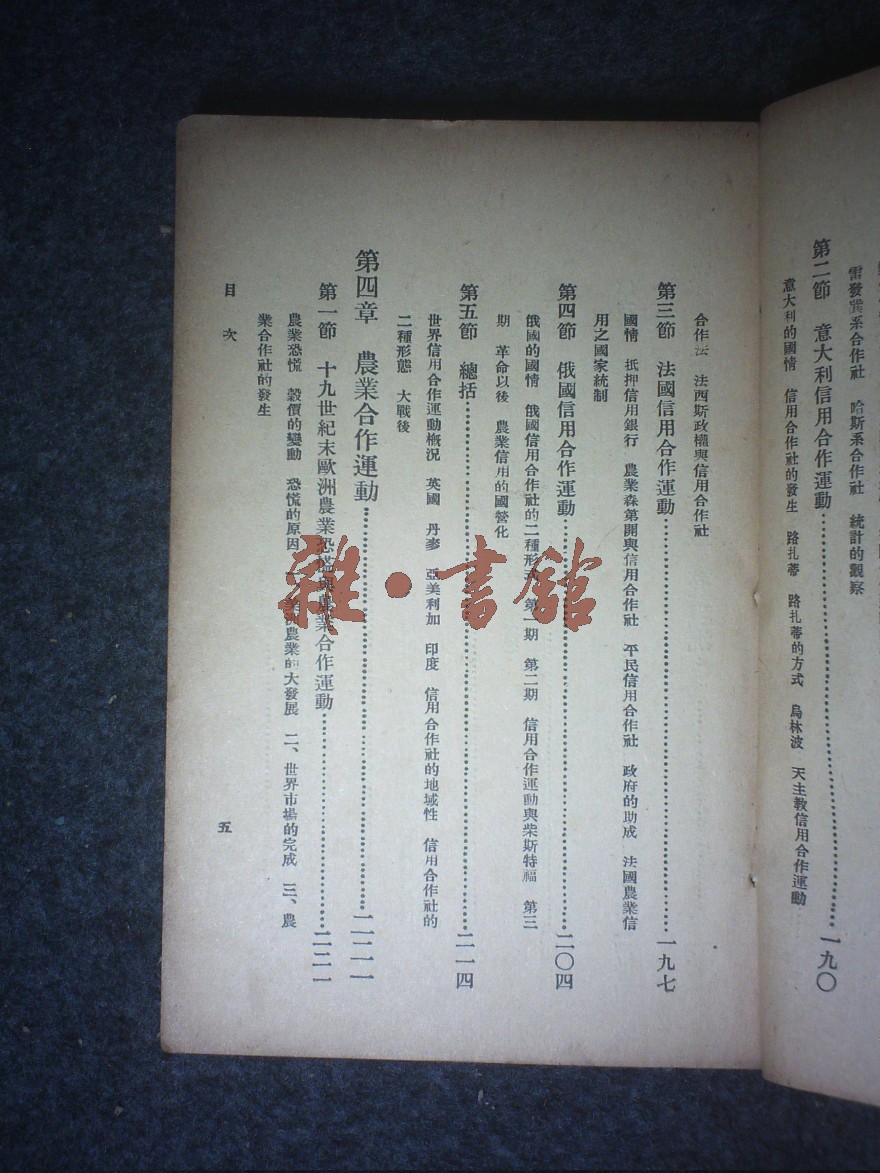 雷發巽系合作社　哈斯系合作社　統計的觀察
第二節　意大利信用合作運動…………一九〇
意大利的國情　信用合作社的發生　路扎蒂　路扎蒂的方式　烏林波　天主教信用合作運動
合作法　法西斯政權與信用合作社
第三節　法國信用合作運動…………一九七
國情　抵押信用銀行　農業森第開與信用合作社　平民信用合作社　政府的助成　法國農業信
用之國家統制
第四節　俄國信用合作運動…………二〇四
俄國的國情　俄國信用合作社的二種形式　第一期　第二期　信用合作運動與柴斯特福　第三
期　革命以後　農業信用的國營化
第五節　總括…………二一四
世界信用合作運動槪況　英國　丹麥　亞美利加　印度　信用合作社的地域性　信用合作社的
二種形態　大戰後
第四章　農業合作運動…………二二一
第一節　十九世紀末歐洲農業恐慌與農業合作運動…………二二一
農業恐慌　穀價的變動　恐慌的原因　一、美洲農業的大發展　二、世界市場的完成　三、農
業合作社的發生
目次
五
雜·書館